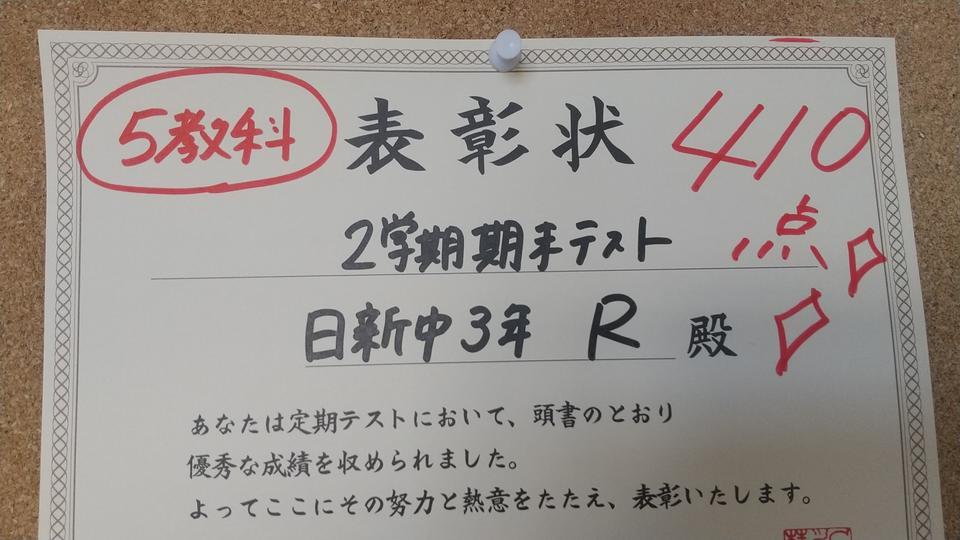 5教科
表彰状
410
点
2学期期末テスト
日新中3年 R 殿
あなたは定期テストにおいて、頭書のとおり
優秀な成績を収められました。
よってここにその努力と熱意をたたえ、表彰いたします。